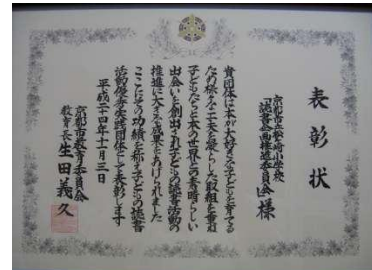 表彰状
京都市立松ヶ崎小学校
「読書企画推進委員会」様
貴団体は本が大好きな子どもを育てる
ため様々な工夫を凝らした取組を重ね
子どもたちと本の世界との素晴らしい
出会いを創出され子どもの読書活動の
推進に大きな成果をあげられました
ここにその功績を称え子どもの読書
活動優秀実践団体として表彰します
平成二十四年十一月三日
京都市教育委員会
教育長 生田義久